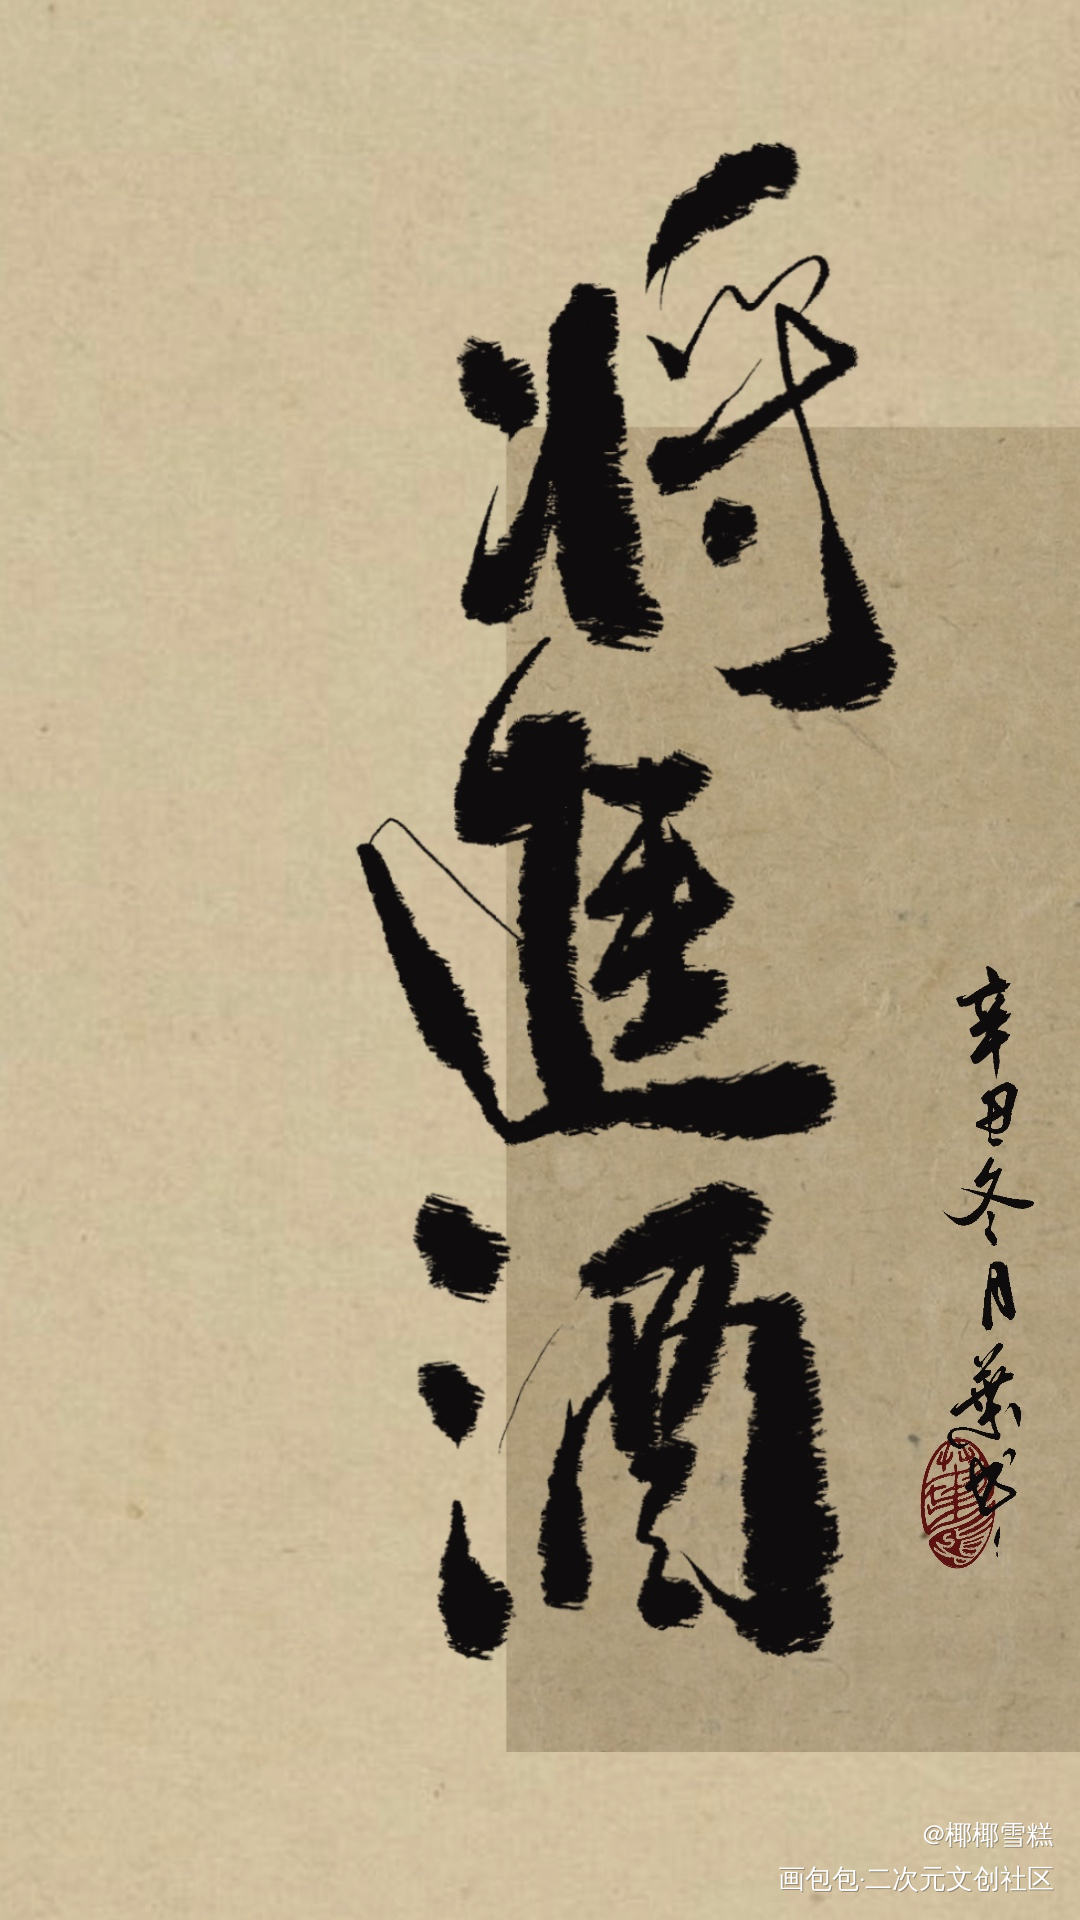 將進酒
辛丑冬月葉书
@椰椰雪糕
画包包·二次元文创社区